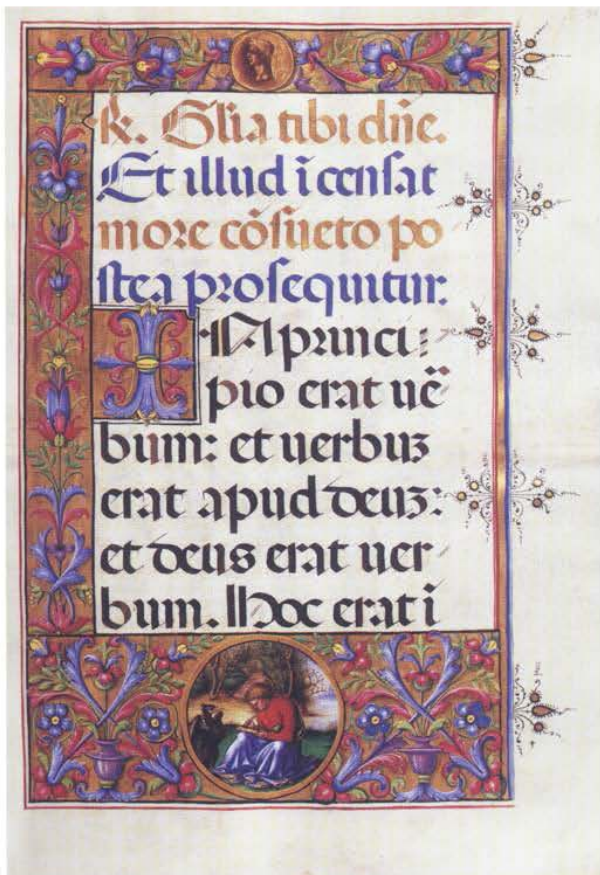 R. Glia tibi dn̄e.
Et illud ī censat
more cōsueto po
stea prosequitur.
IN princi
pio erat ue᷑
bum: et uerbuꝫ
erat apud deuꝫ:
et deus erat uer
bum. Hoc erat ī